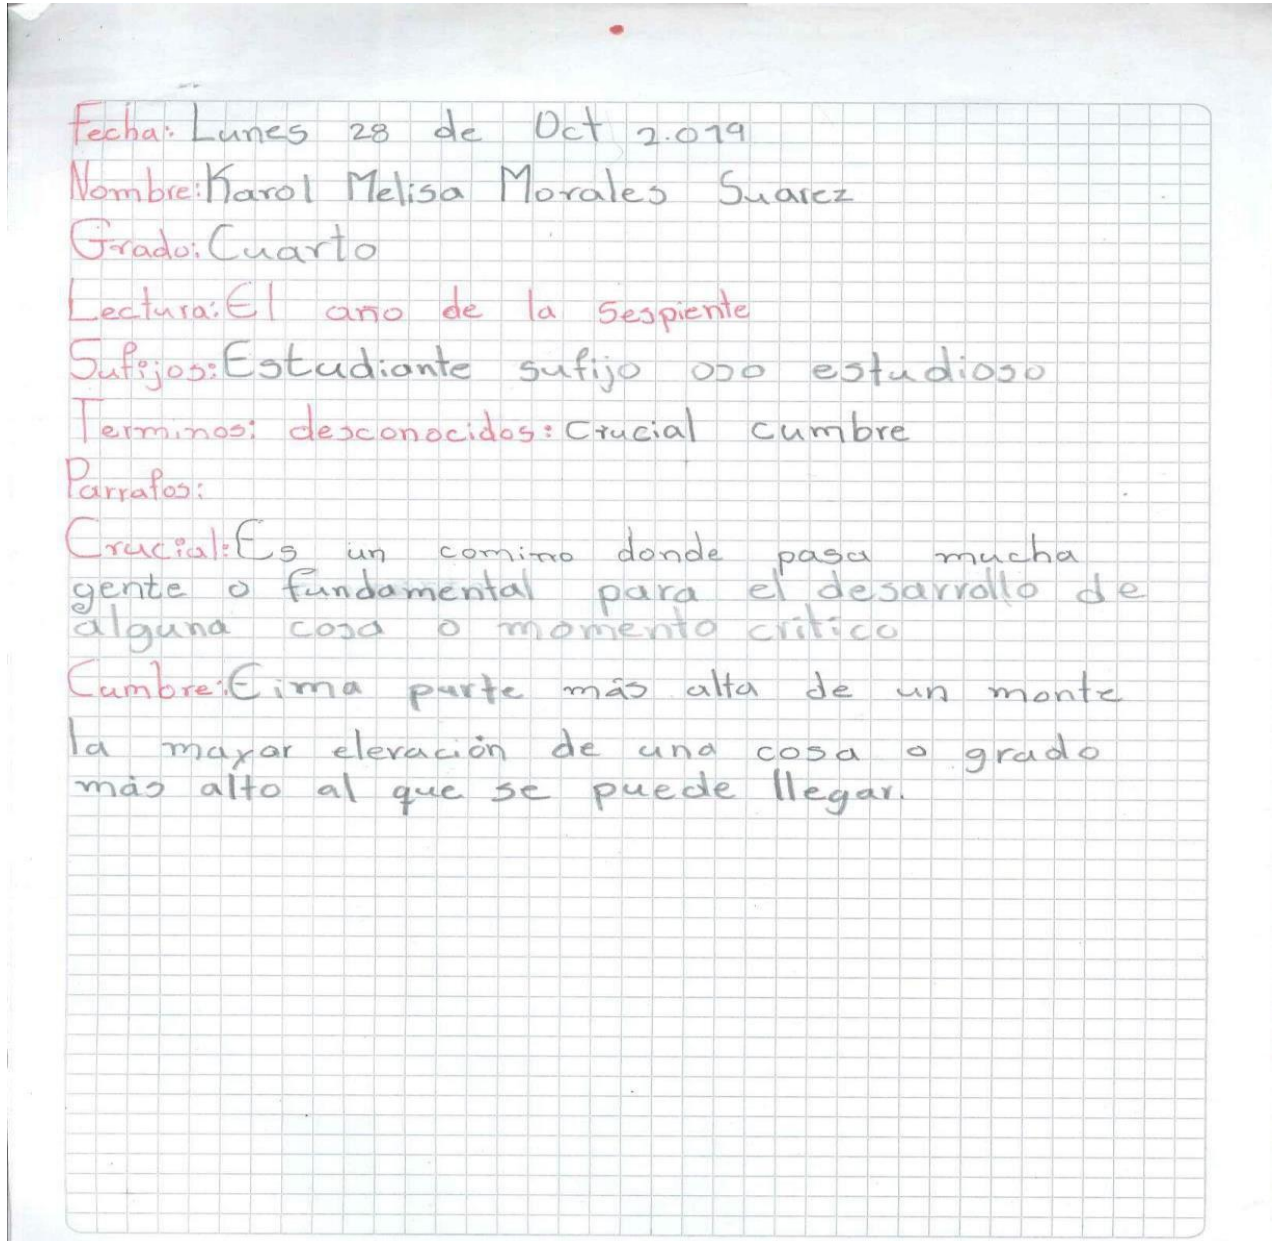 Fecha: Lunes 28 de Oct 2.019
Nombre: Karol Melisa Morales Suarez
Grado: Cuarto
Lectura: El año de la Sespiente
Sufijos: Estudiante sufijo oso estudioso
Terminos: desconocidos: Crucial cumbre
Parrafos:
Crucial: Es un comino donde pasa mucha
gente o fundamental para el desarrollo de
alguna cosa o momento critico
Cumbre: Cima parte más alta de un monte
la mayor elevación de una cosa o grado
más alto al que se puede llegar.